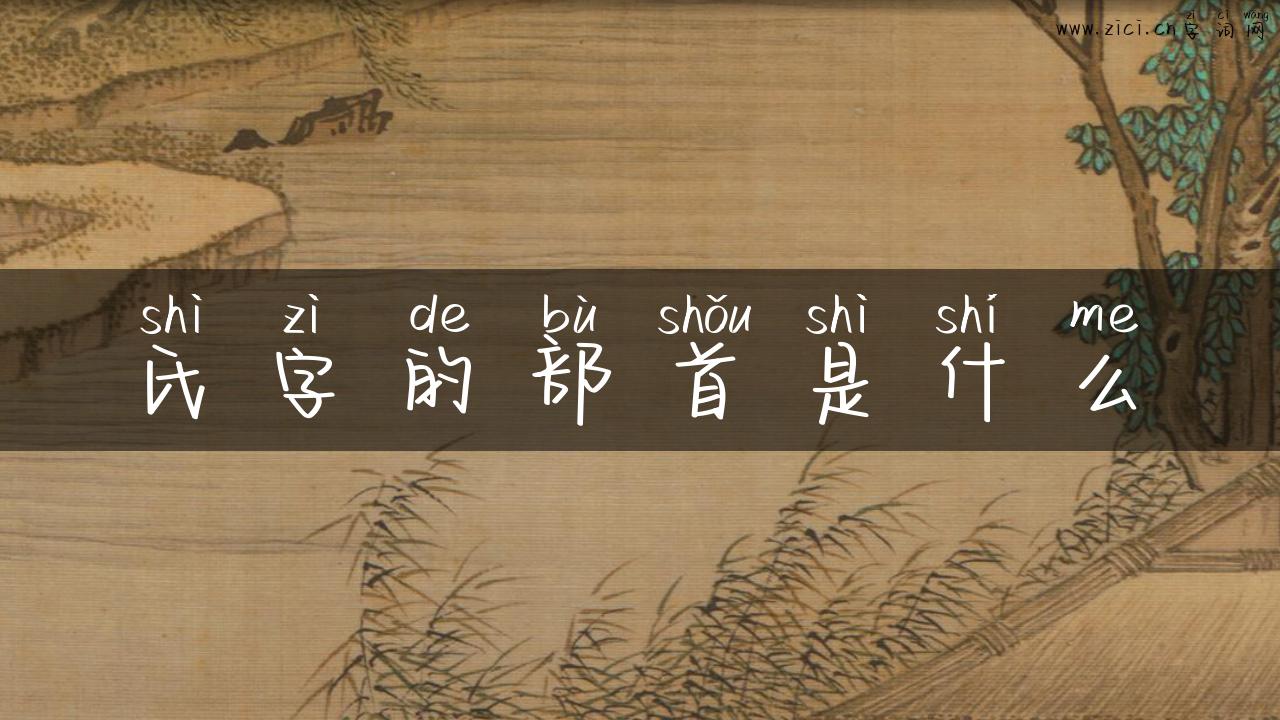 zì cí wǎng
www.zici.cn 字词网
shì zì de bù shǒu shì shí me
氏字的部首是什么